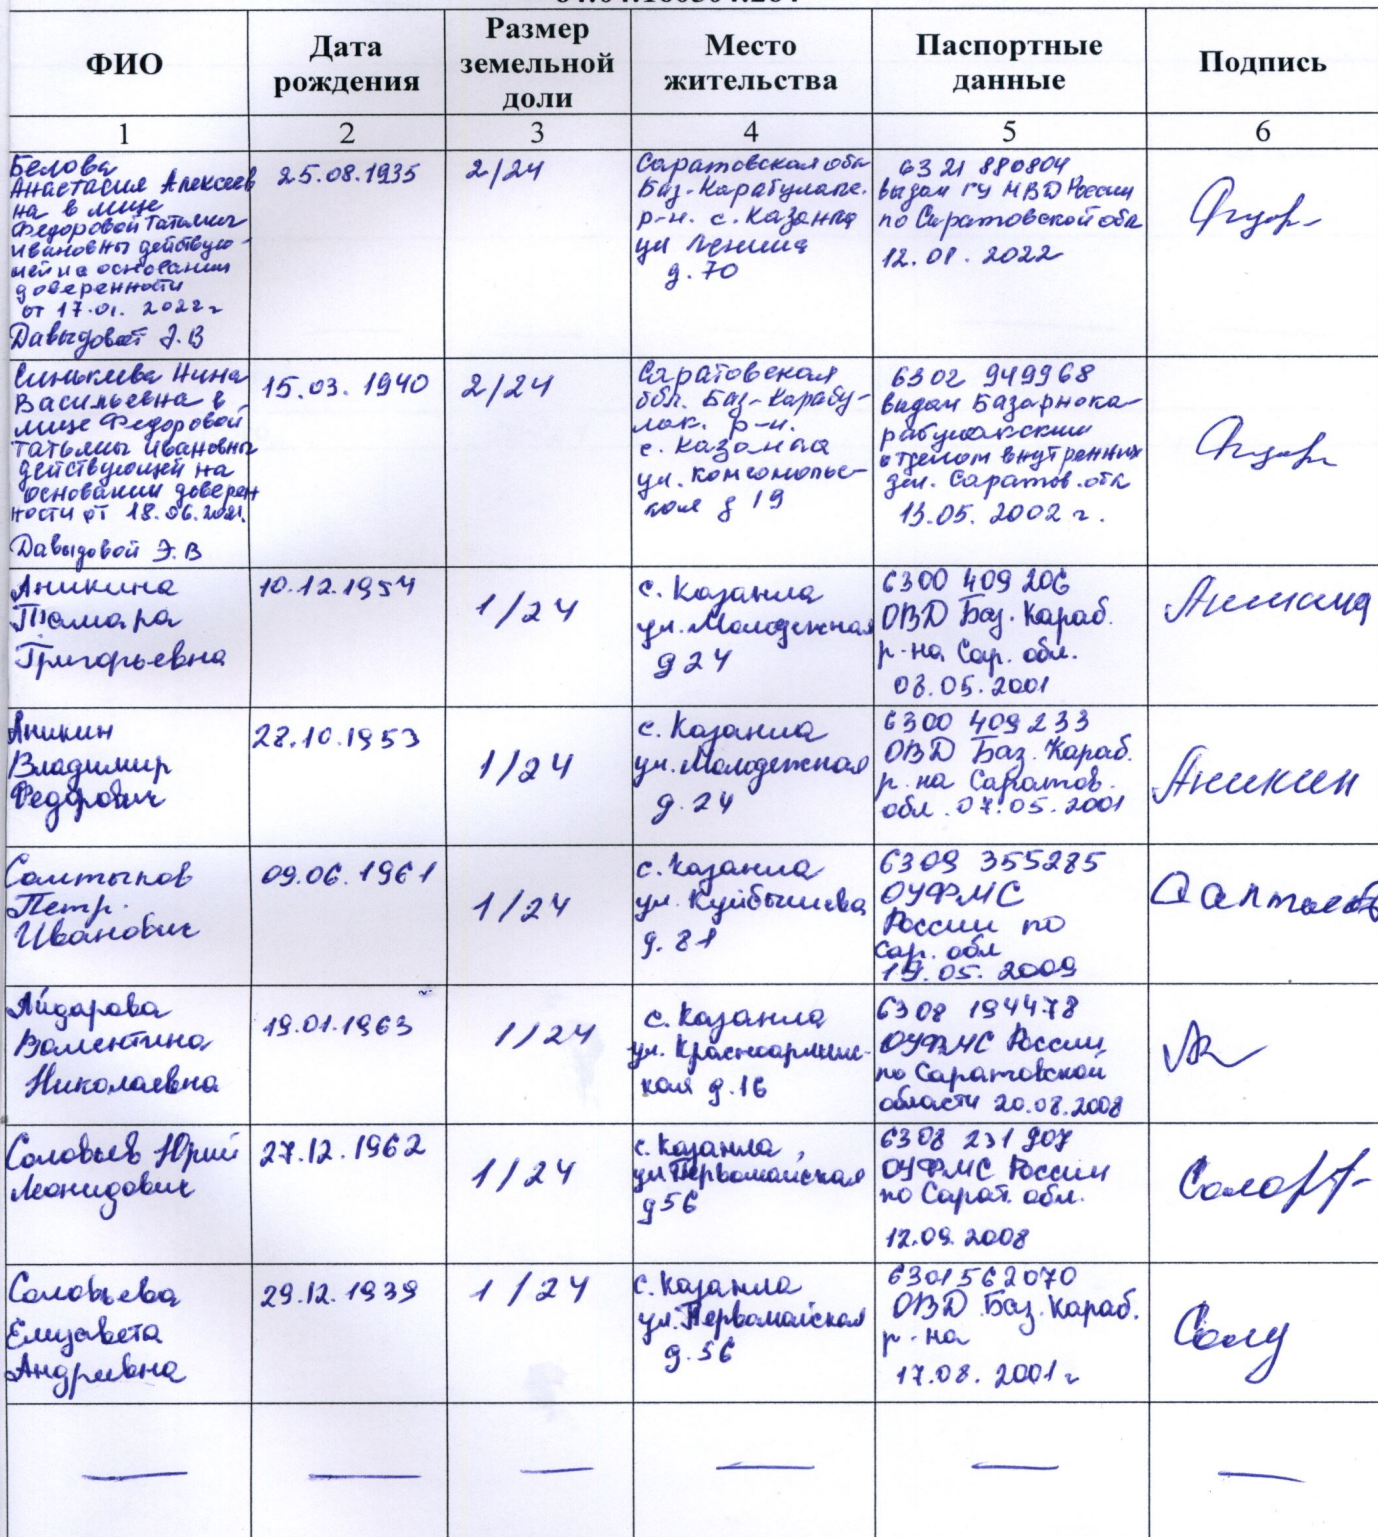 ФИО
Дата
рождения
Размер
земельной
доли
Место
жительства
Паспортные
данные
Подпись
1
2
3
4
5
6
Белова
Анастасия Алексеев
на в лице
Федоровой Татьяны
Ивановны действую-
щей на основании
доверенности
от 17.01. 2022 г
Давыдовой Э.В
25.08.1935
2/24
Саратовская обл
Баз-Карабулакс.
р-н. с. Казанла
ул Ленина
д. 70
63 21 880804
выдан ГУ МВД России
по Саратовской обл
12.01. 2022
Синяева Нина
Васильевна в
лице Федоровой
Татьяны Ивановны
действующей на
основании доверен
ности от 18.06.2021.
Давыдовой Э.В
15.03. 1940
2/24
Саратовская
обл. Баз-Карабу-
лак. р-н.
с. Казанла
ул. Комсомольс-
кая д 19
6302 949968
выдан Базарнока-
рабулакским
отделом внутренних
дел. Саратов. обл
13.05. 2002 г.
Аникина
Тамара
Григорьевна
10.12.1954
1/24
с. Казанла
ул. Молодежная
д 24
6300 409 206
ОВД Баз. Караб.
р-на Сар. обл.
08.05.2001
Аникина
Аникин
Владимир
Федорович
28.10.1953
1/24
с. Казанла
ул. Молодежная
д. 24
6300 409 233
ОВД Баз. Караб.
р. на Саратов.
обл. 07.05.2001
Аникин
Салтыков
Петр
Иванович
09.06.1961
1/24
с. Казанла
ул. Куйбышева
д. 81
6309 355285
ОУФМС
России по
Сар. обл
19.05. 2009
Айдарова
Валентина
Николаевна
19.01.1963
1/24
с. Казанла
ул. Красноармейс-
кая д. 16
6308 194478
ОУФМС России
по Саратовской
области 20.08.2008
Соловьев Юрий
Леонидович
27.12.1962
1/24
с. Казанла,
ул Первомайская
д 56
6308 231 907
ОУФМС России
по Сарат. обл.
12.09.2008
Соловьева
Елизавета
Андреевна
29.12.1939
1/24
с. Казанла
ул. Первомайская
д. 56
6301562070
ОВД Баз. Караб.
р-на
17.08. 2001 г